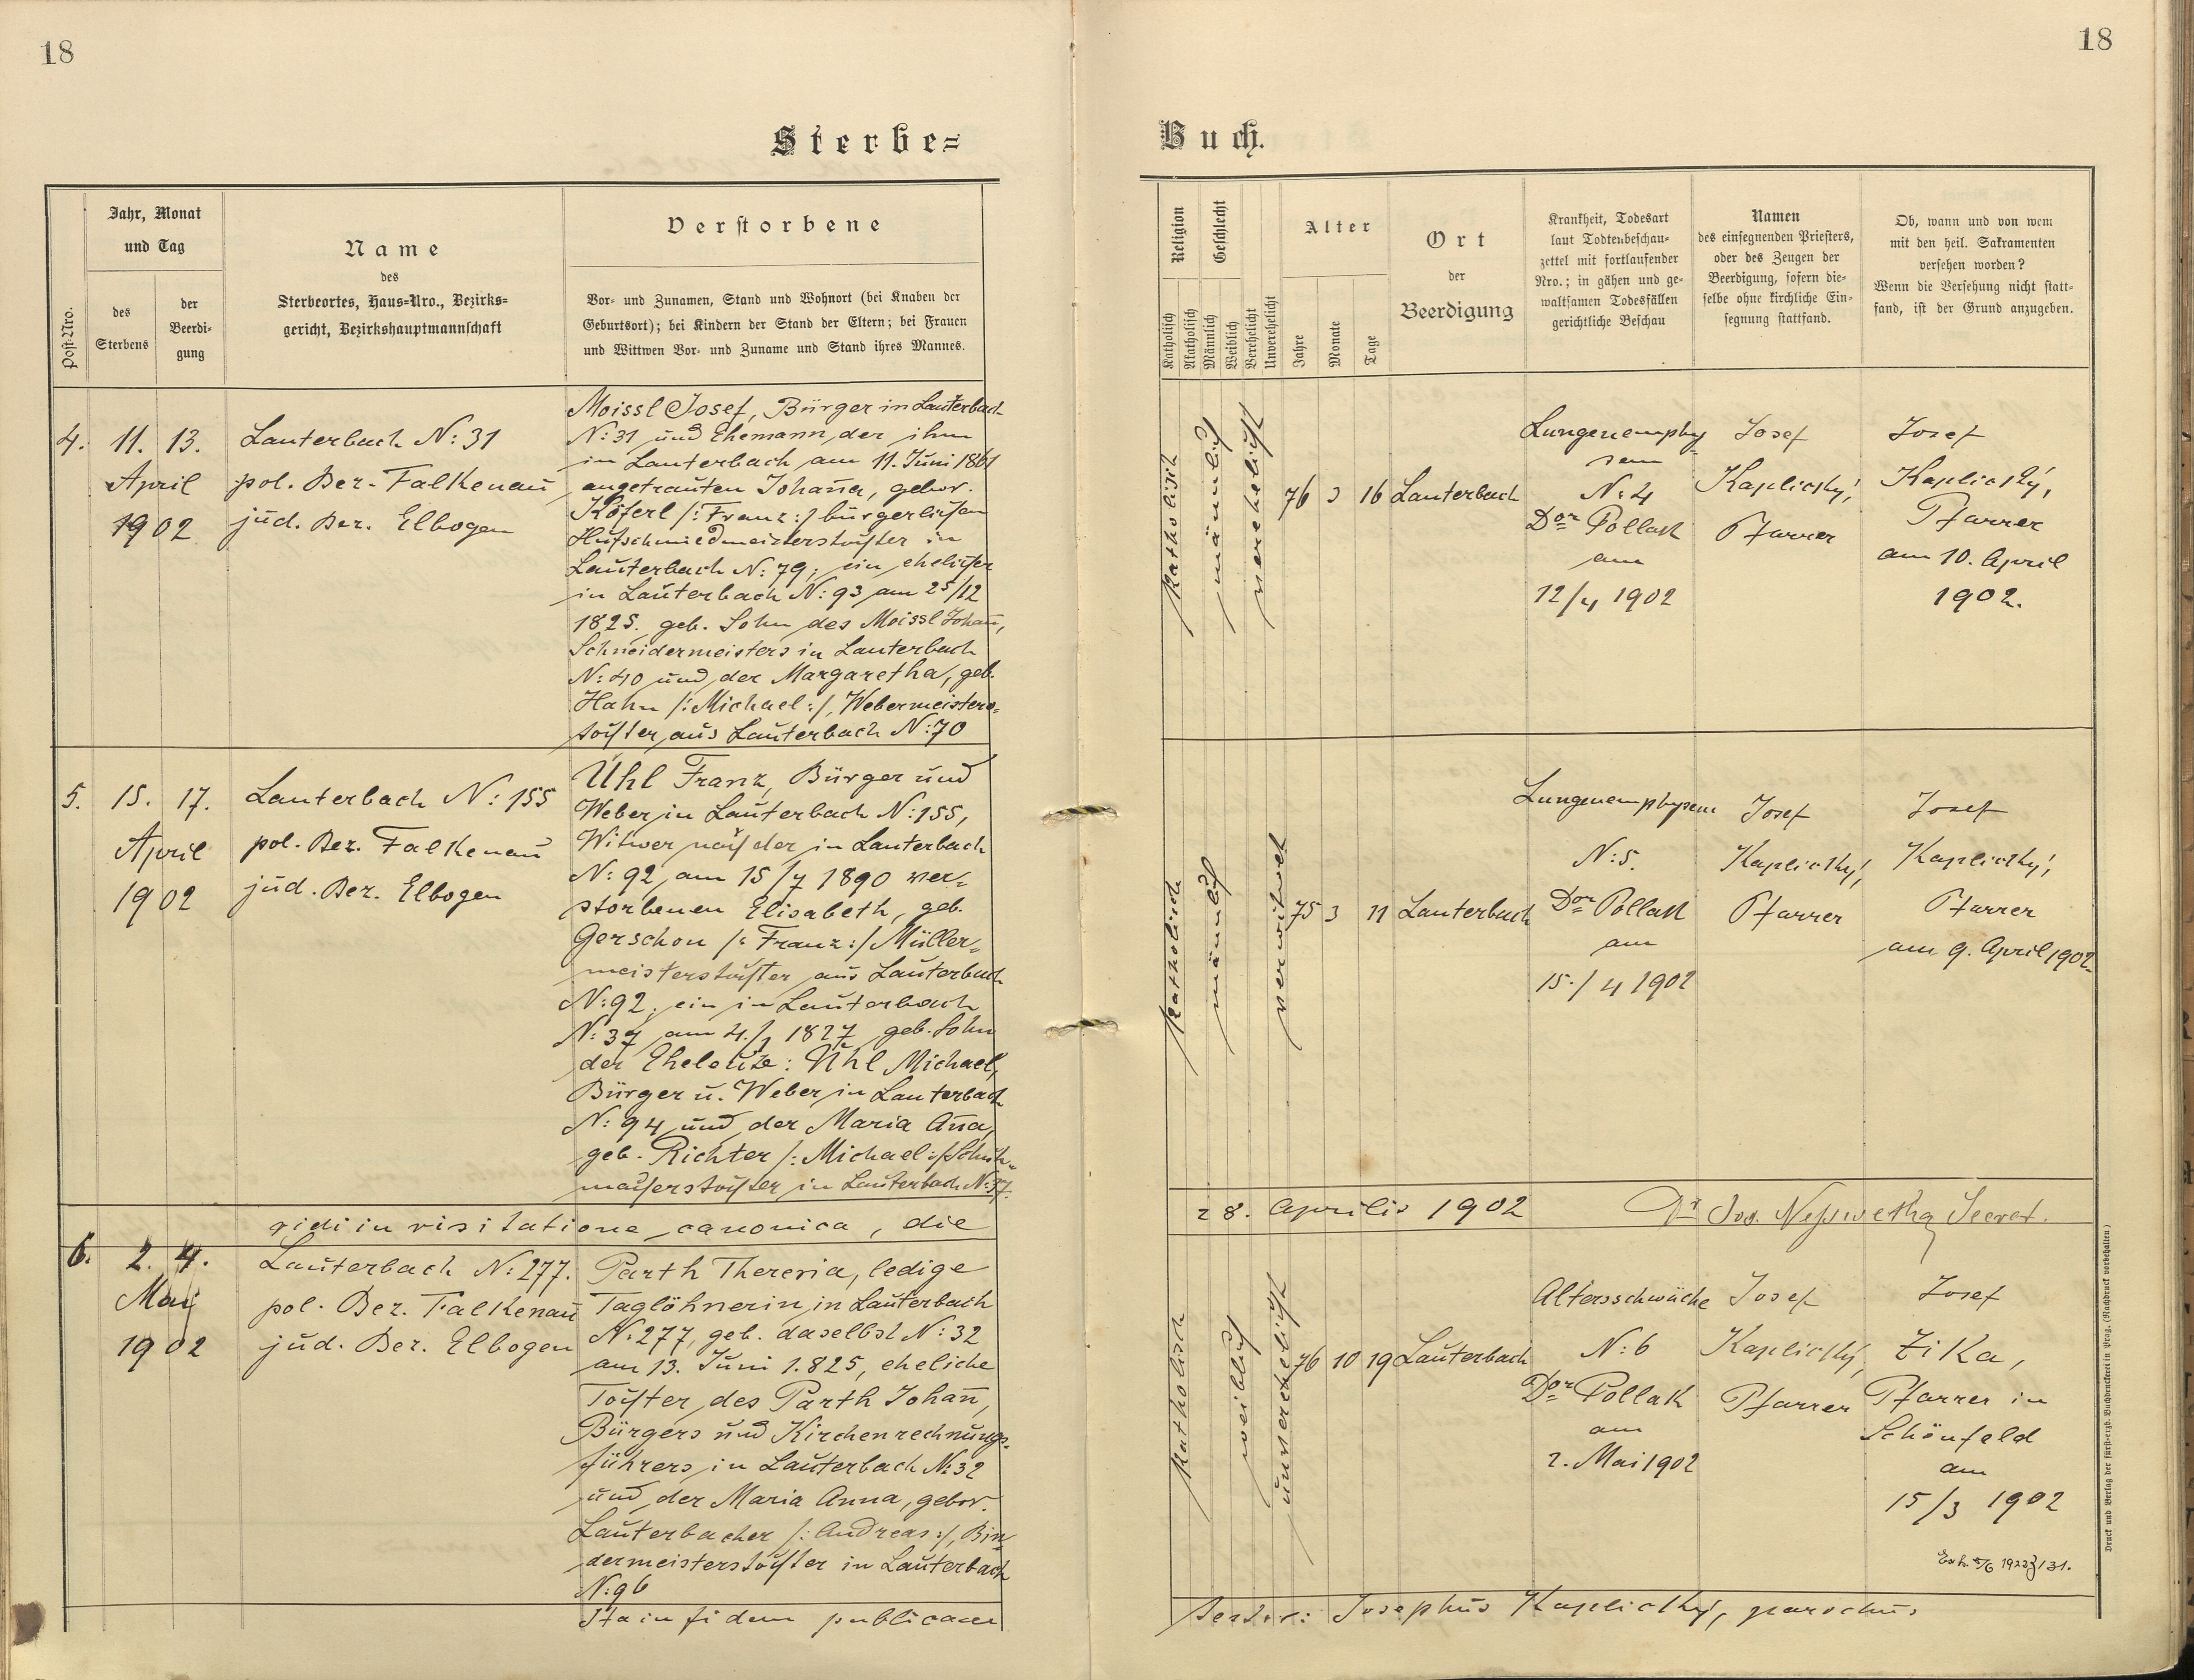 18
18
Sterbe=
Buch.
Post-Nro.
Jahr, Monat
und Tag
des
Sterbens
der
Beerdi-
gung
Name
des
Sterbeortes, Haus-Nro., Bezirks=
gericht, Bezirkshauptmannschaft
Verstorbene
Vor- und Zunamen, Stand und Wohnort (bei Knaben der
Geburtsort); bei Kindern der Stand der Eltern; bei Frauen
und Wittwen Vor- und Zuname und Stand ihres Mannes.
Religion
Katholisch
Akatholisch
Geschlecht
Männlich
Weiblich
Verehelicht
Unverehelicht
Alter
Jahre
Monate
Tage
Ort
der
Beerdigung
Krankheit, Todesart
laut Todtenbeschau-
zettel mit fortlaufender
Nro.; in gähen und ge-
waltsamen Todesfällen
gerichtliche Beschau
Namen
des einsegnenden Priesters,
oder des Zeugen der
Beerdigung, sofern die-
selbe ohne kirchliche Ein-
segnung stattfand.
Ob, wann und von wem
mit den heil. Sakramenten
versehen worden?
Wenn die Versehung nicht statt-
fand, ist der Grund anzugeben.
4.
11. 13.
April
1902
Lauterbach N: 31
pol. Bez. Falkenau
jud. Bez. Elbogen
Moissl Josef, Bürger in Lauterbach
N: 31 und Ehemann der ihm
in Lauterbach am 11. Juni 1861
angetrauten Johana, gebor.
Köferl /: Franz :/ bürgerlichen
Hufschmiedmeisterstochter in
Lauterbach N: 79; ein ehelicher
in Lauterbach N: 93 am 25/12
1825. geb. Sohn des Moissl Johan,
Schneidermeisters in Lauterbach
N: 40 und der Margaretha, geb.
Hahn /: Michael :/, Webermeisters=
tochter aus Lauterbach N: 70
katholisch
männlich
verehelicht
76 3 16
Lauterbach
Lungenemphy=
sem
N: 4
Dor Pollak
am
12/4 1902
Josef
Kaplicky,
Pfarrer
Josef
Kaplicky,
Pfarrer
am 10. April
1902.
5.
15. 17.
April
1902
Lauterbach N: 155
pol. Bez. Falkenau
jud. Bez. Elbogen
Uhl Franz, Bürger und
Weber in Lauterbach N: 155,
Witwer nach der in Lauterbach
N: 92 am 15/7 1890 ver=
storbenen Elisabeth, geb.
Gerschon /: Franz :/ Müller=
meisterstochter aus Lauterbach
N: 92; ein in Lauterbach
N: 37 am 4./1 1827 geb. Sohn
der Eheleute: Uhl Michael,
Bürger u. Weber in Lauterbach
N: 94 und der Maria Ana,
geb. Richter /: Michael :/ Schuh=
macherstochter in Lauterbach N: 37.
katholisch
männlich
verwitwet
75 3 11
Lauterbach
Lungenemphysem
N: 5.
Dor Pollak
am
15./4 1902
Josef
Kaplicky,
Pfarrer
Josef
Kaplicky,
Pfarrer
am 9. April 1902.
vidi in visitatione canonica, die
28. Aprilis 1902
Dr Jos. Secret.
6.
2. 4.
Mai
1902
Lauterbach N: 277.
pol. Bez. Falkenau
jud. Bez. Elbogen
Parth Theresia, ledige
Taglöhnerin in Lauterbach
N: 277, geb. daselbst N: 32
am 13. Juni 1.825, eheliche
Tochter des Parth Johan,
Bürgers und Kirchenrechnungs=
führers in Lauterbach N: 32
und der Maria Anna, gebor.
Lauterbacher /: Andreas :/, Bin=
dermeisterstochter in Lauterbach
N: 96
katholisch
weiblich
unverehelicht
76 10 19
Lauterbach
Altersschwäche
N: 6
Dor Pollak
am
2. Mai 1902
Josef
Kaplicky,
Pfarrer
Josef
Zika,
Pfarrer in
Schönfeld
am
15/3 1902
Ita in fidem publicam
testor: Josephus Kaplicky, parochus
Druck und Verlag der fürst-erzb. Buchdruckerei in Prag. (Nachdruck vorbehalten.)